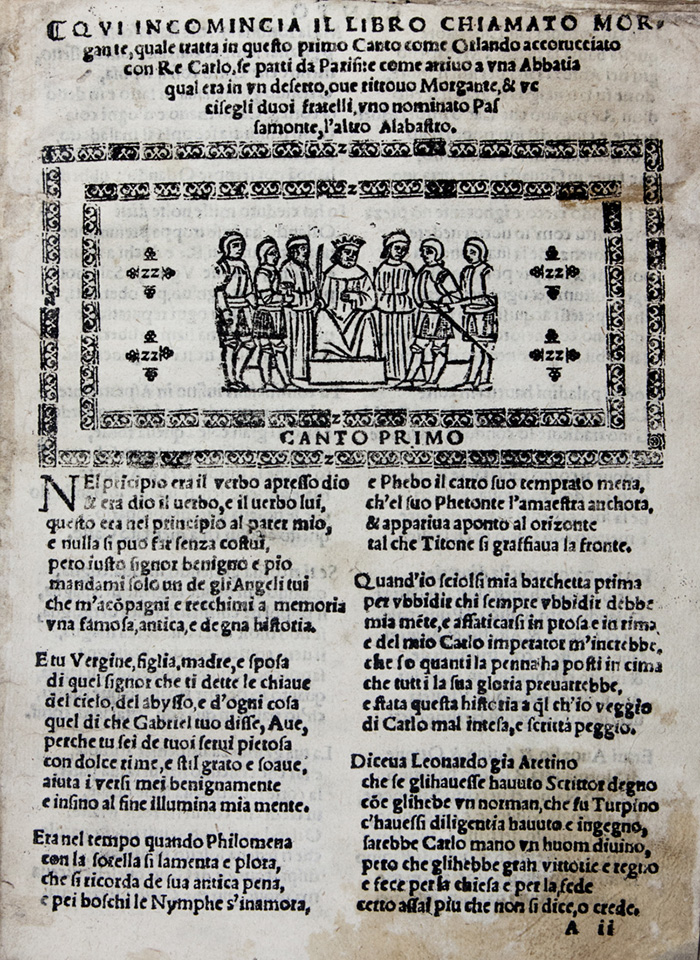 QVI INCOMINCIA IL LIBRO CHIAMATO MOR-
gante, quale tratta in questo primo Canto come Orlando accorucciato
con Re Carlo, se parti da Parisi: e come arriuo a vna Abbatia
qual era in vn deserto, oue ritrouo Morgante, & vc
cisegli duoi fratelli, vno nominato Pas
samonte, l'altro Alabastro.
CANTO PRIMO
NEl pricipio era il verbo apresso dio
& era dio il uerbo, e il uerbo lui,
questo era nel principio al pater mio,
e nulla si puo far senza costui,
pero iusto signor benigno e pio
mandami solo un de gli Angeli tui
che m'acōpagni e recchimi a memoria
vna famosa, antica, e degna historia.
E tu Vergine, figlia, madre, e sposa
di quel signor che ti dette le chiaue
del cielo, del abysso, e d'ogni cosa
quel di che Gabriel tuo disse, Aue,
perche tu sei de tuoi serui pietosa
con dolce rime, e stil grato e soaue,
aiuta i versi mei benignamente
e insino al fine illumina mia mente.
Era nel tempo quando Philomena
con la sorella si lamenta e plora,
che si ricorda de sua antica pena,
e pei boschi le Nymphe s'inamora,
e Phebo il carro suo temprato mena,
ch'el suo Phetonte l'amaestra anchora,
& appariua aponto al orizonte
tal che Titone si graffiaua la fronte.
Quand'io sciolsi mia barchetta prima
per vbbidir chi sempre vbbidir debbe
mia mēte, e affaticarsi in prosa e in rima,
e del mio Carlo imperator m'increbbe,
che so quanti la penna ha posti in cima
che tutti la sua gloria preuarrebbe,
e stata questa historia a q̄l ch'io veggio
di Carlo mal intesa, e scritta peggio.
Diceua Leonardo gia Aretino
che se glihauesse hauuto Scrittor degno
cōe glihebe vn norman, che fu Turpino
c'hauessi diligentia hauuto e ingegno,
sarebbe Carlo mano vn huom diuino,
pero che glihebbe gran vittorie e regno
e fece per la chiesa e per la fede
certo assai piu che non si dice, o crede.
A ii